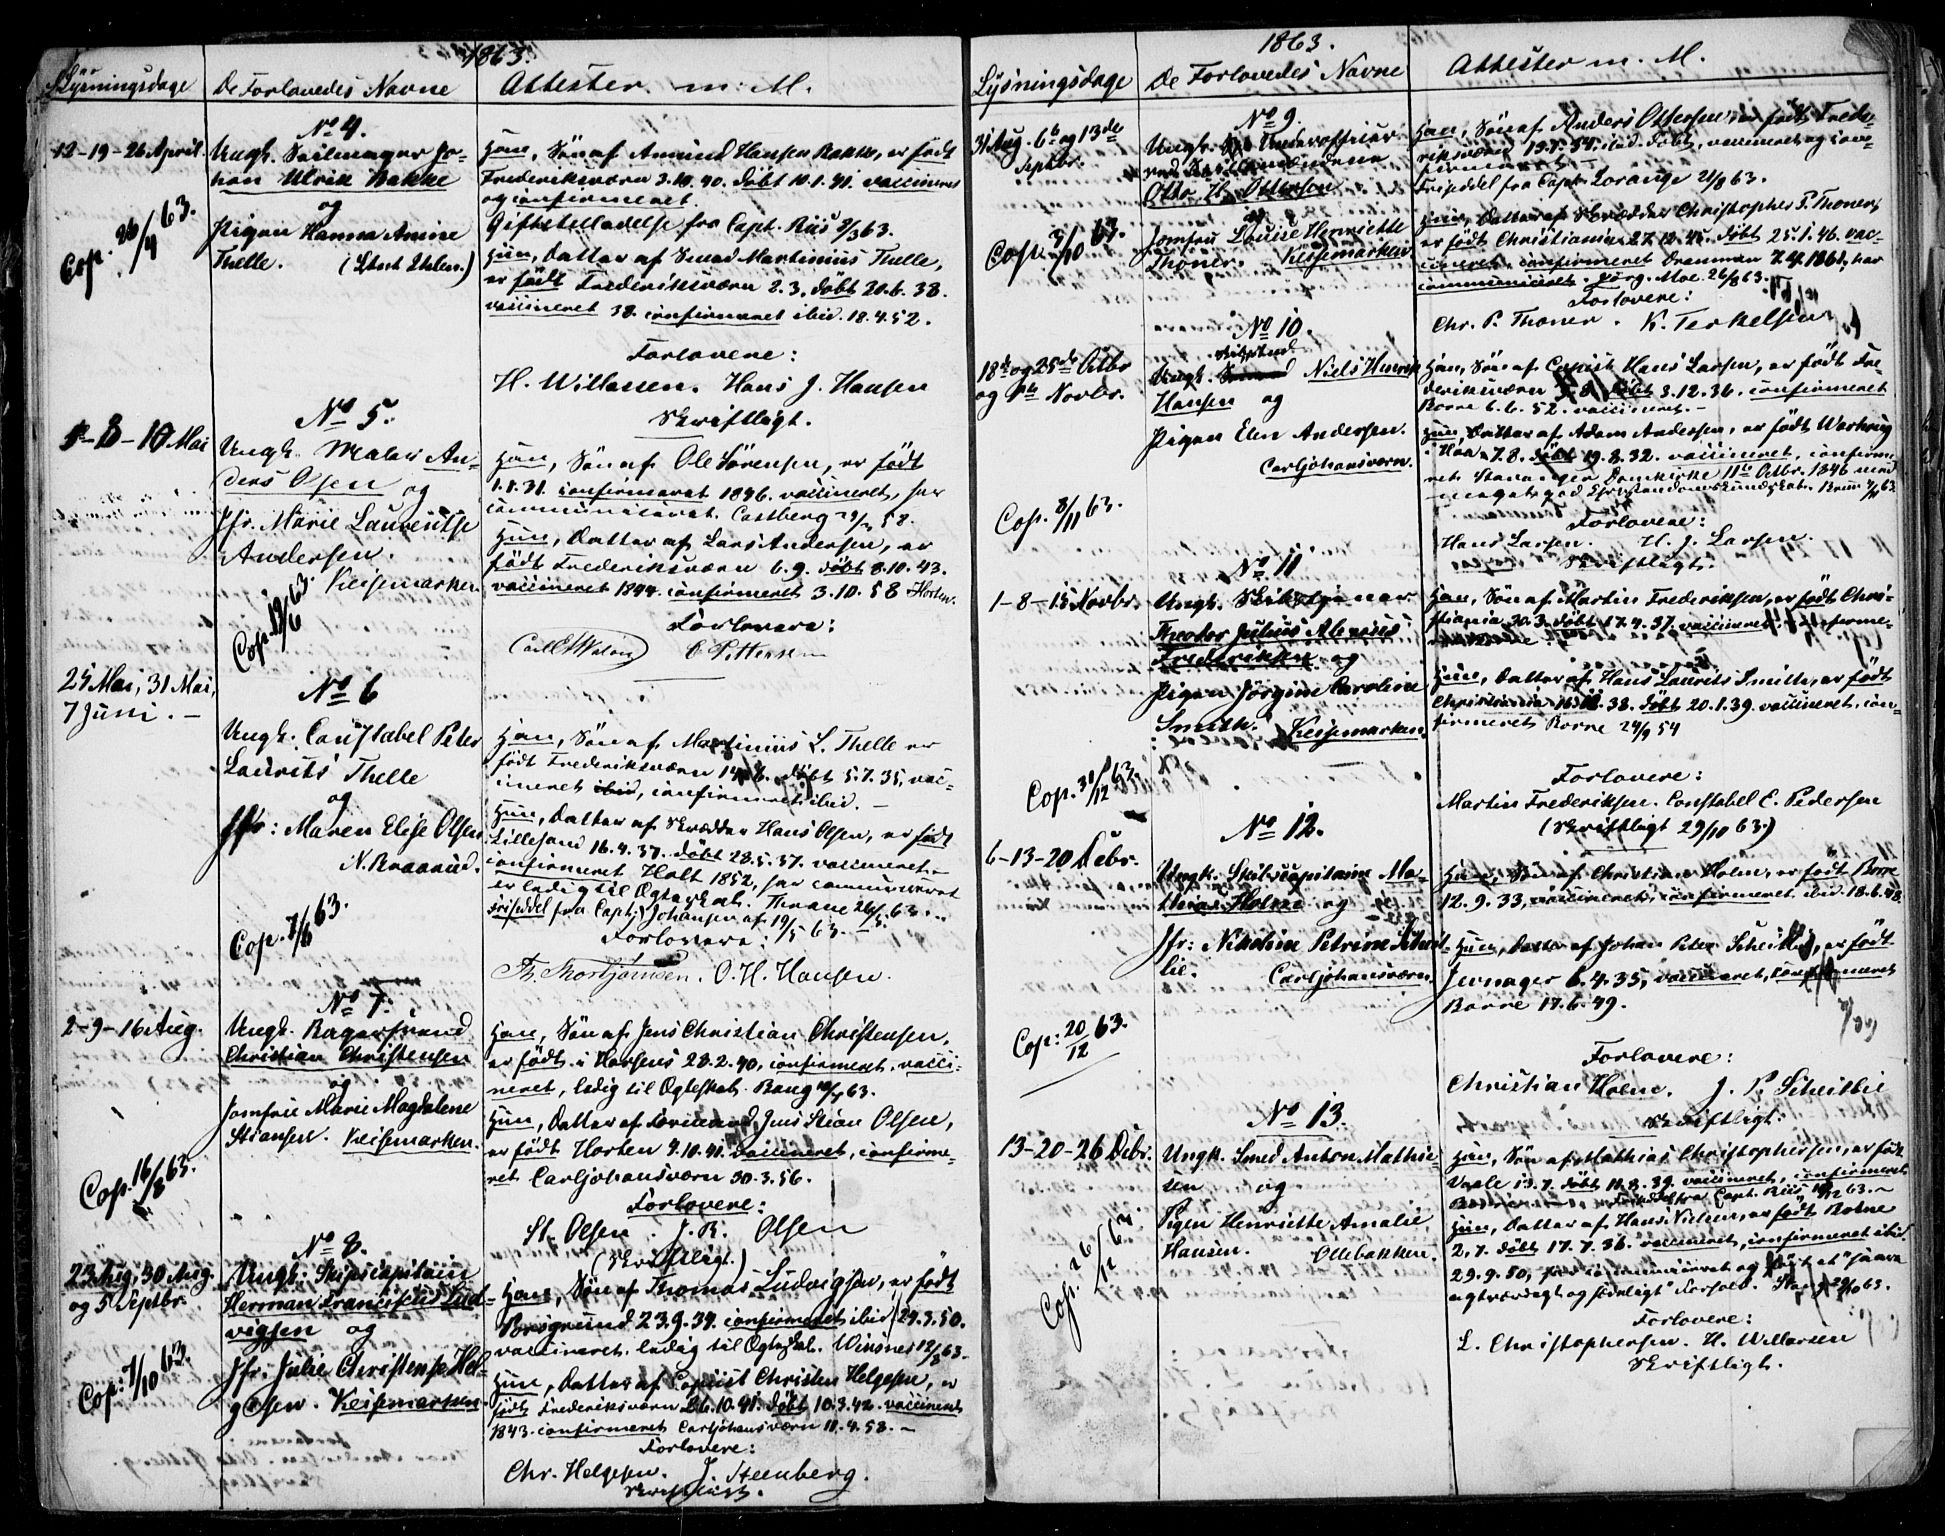 1863.
Lysningsdage
De Forlovedes Navne
Attester m: M.
No 4.
12-19-26 April
Ungk. Seilmager Jo-
han Ulrik Bakke
og
Pigen Hanna Amine
Thelle.
Cop. 26/4 63.
Han, Søn af Amund Hansen Bakke, er født
Frederiksværn 3.10.40. døbt 10.1.41. vaccineret
og confirmeret.
Giftetilladelse fra Capt. Riis 9/3 63.
Hun, Datter af Smed Martinius Thelle,
er født Frederiksværn 2.3. døbt 20.6.38.
vaccineret 38. confirmeret ibid. 18.4.52.
Forlovere:
H. Willassen. Hans J. Hansen
Skriftligt.
No 5.
Mai
Ungk. Maler An-
ders Olsen og
Jfr. Marie Laurentse
Andersen.
Keisemarken
Cop. 19/6 63.
Han, Søn af Ole Sørensen, er født
1.1.31. confirmeret 1846. vaccineret, har
communiceret. Castberg 58.
Hun, Datter af Lars Andersen, er
født Frederiksværn 6.9. døbt 8.10.43.
vaccineret 1844. confirmeret 3.10.58 Horten.
Forlovere:
No 6
25 Mai, 31 Mai,
7 Juni. -
Ungk. Constabel Peter
Laurits Thelle
og
Jfr: Maren Elise Olsen
N. Braarud.
Cop. 7/6 63.
Han, Søn af Martinius L. Thelle er
født Frederiksværn døbt 5.7.35, vac-
cineret ibid, confirmeret ibid. -
Hun, Datter af Skrædder Hans Olsen, er født
Lillesand 16.4.37. døbt 28.5.37. vaccineret -
confirmeret Holt 1852, har communiceret
er ledig til Ægteskab. Thrane 63.
Friseddel fra Capt. Johansen af 19/5 63. -
Forlovere:
Th. Thorbjørnsen. O. H. Hansen.
No 7.
2-9-16 Aug.
Ungk. Bagersvend
Christian Christensen
og
Jomfru Marie Magdalene
Stiansen. Keisemarken.
Cop. 16/8 63.
Han, Søn af Jens Christian Christensen,
er født i Horsens 28.2.40, confirmeret, vacci-
neret, ledig til Ægteskab. Bang 63.
Hun, Datter af Jens Stian Olsen,
er født Horten 9.10.41. vaccineret, confirme-
ret Carljohansværn 30.3.56.
Forlovere:
St. Olsen. J. R. Olsen
(Skriftligt.)
No 8.
23 Aug, 30 Aug.
og 5 Septbr.
Ungk. Skipscapitain
Herman Franciscus Lud-
vigsen og
Jfr. Julie Christense Hel-
gesen. Keisemarken.
Cop: 7/10 63.
Han, Søn af Thomas Ludvigsen, er født
Brevigrund 23.9.34. confirmeret ibid 24.3.50.
vaccineret. ledig til Ægteskab. Winsnes 12/8 63.
Hun, Datter af Copiist Christen Helgesen, er
født Frederiksværn 26.10.41. døbt 10.3.42. vaccineret
1843. confirmeret Carljohansværn 11.4.58. -
Forlovere:
Chr. Helgesen. J. Steenberg.
Skriftligt.
1863.
Lysningsdage
De Forlovedes Navne
Attester m. M.
No 9.
31 Aug. 6te og 13de
Septbr.
Ungk. Underofficier
ved Sømændene
Otto H. Ottersen
og
Jomfru Louise Henriette
Thoner. Keisemarken
Cop. 9/10 63.
Han, Søn af Anders Ottersen, er født Frede-
riksværn ibid. døbt, vaccineret og con-
firmeret. -
Friseddel fra Capt. Lorange 21/8 63.
Hun, Datter af Skrædder Christopher P. Thoner,
er født Christiania 27.12.45. døbt 25.1.46. vac-
cineret, confirmeret Drammen 7.4.1861, har
communiceret. Jørg. Moe. 26/8 63.
Forlovere:
Chr. P. Thoner. K. Terkelsen
No 10.
18de og 25de Octbr
og 1ste Novbr.
Ungk. Niels Henrik
Hansen og
Pigen Elen Andersen.
Carljohansværn.
Cop. 8/11 63.
Han, Søn af Copiist Hans Larsen, er født Fre-
deriksværn døbt 3.12.36. confirmeret
Borre 6.6.52. vaccineret. -
Hun, Datter af Adam Andersen, er født
7.8. døbt 19.8.32. vaccineret, confirme-
ret Stavanger Domkirke 11te Octbr. 1846 med
meget god Christendomskundskab.
Forlovere:
Hans Larsen. H. J. Larsen.
Skriftligt.
No 11
1-8-15 Novbr.
Ungk.
Theodor Julius Alexius
Frederiksen og
Pigen Jørgine Caroline
Smith. Keisemarken.
Cop. 31/12 63.
Han, Søn af Martin Frederiksen, er født Chri-
stiania 30.3. døbt 17.4.37. vaccineret, confirme-
Hun, Datter af Hans Laurits Smith, er født
Christiania døbt 20.1.39. vaccineret, con-
firmeret Borre 24/9 54
Forlovere:
Martin Frederiksen. Constabel E. Pedersen
(Skriftligt 29/10 63.)
No 12.
6-13-20 Decbr.
Ungk. Skibscapitain Ma-
thias Holm og
Jfr: Nikoline Petrine Scheit-
lie. Carljohansværn.
Cop: 20/12 63.
Han, Søn af Christian Holm, er født Borre
12.9.33, vaccineret, confirmeret ibid. 18.6.48.
Hun, Datter af Johan Peter Scheitlie, er født
Jevnager 6.4.35, vaccineret, confirmeret
Borre 17.6.49.
Forlovere:
Christian Holm. J. P. Scheitlie
Skriftligt.
No 13.
13-20-26 Decbr.
Ungk. Smed Anton Mathie-
sen og
Pigen Henriette Amalie
Hansen. Ollebakken.
Cop. 26/12 63.
Han, Søn af Mathias Christophersen, er født
Vaale 13.7. døbt 11.8.39. vaccineret, confirmeret
Friseddel fra Capt. Riis 63. -
Hun, Datter af Hans Nielsen, er født Botne
2.7. døbt 17.7.36. vaccineret, confirmeret ibid.
29.9.50, har communiceret og
agtværdigt og sædeligt Forhold. 63.
Forlovere:
L. Christophersen. H. Willassen
Skriftligt.